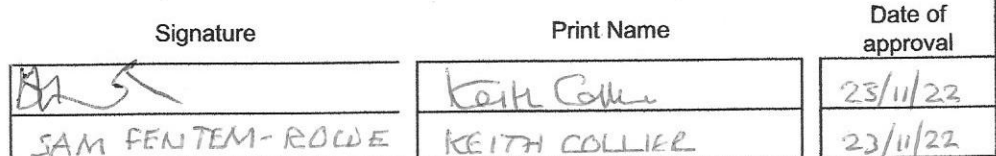 Signature Print Name Date of
approval
Keith Collier 23/11/22
SAM FENTEM-ROWE KEITH COLLIER 23/11/22